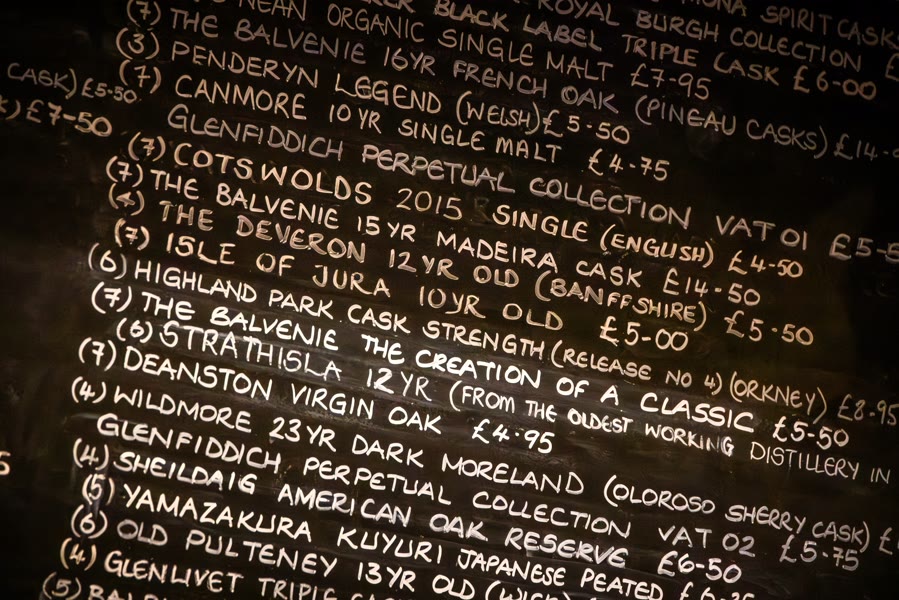 ROYAL BURGH COLLECTION
SPIRIT CASKS
BLACK LABEL TRIPLE CASK £6-00
(7) NEAN ORGANIC SINGLE MALT £7-95
(7) THE BALVENIE 16YR FRENCH OAK (PINEAU CASKS) £14-
(3) PENDERYN LEGEND (WELSH) £5-50
(7) CANMORE 10YR SINGLE MALT £4-75
GLENFIDDICH PERPETUAL COLLECTION VAT 01 £5-5
(7) COTSWOLDS 2015 SINGLE (ENGLISH) £4-50
(7) THE BALVENIE 15YR MADEIRA CASK £14-50
(4) THE DEVERON 12YR OLD (BANFFSHIRE) £5-50
(7) ISLE OF JURA 10YR OLD £5-00
(6) HIGHLAND PARK CASK STRENGTH (RELEASE NO 4) (ORKNEY) £8-95
(7) THE BALVENIE THE CREATION OF A CLASSIC £5-50
(6) STRATHISLA 12YR (FROM THE OLDEST WORKING DISTILLERY IN
(7) DEANSTON VIRGIN OAK £4-95
(4) WILDMORE 23YR DARK MORELAND (OLOROSO SHERRY CASK) £
GLENFIDDICH PERPETUAL COLLECTION VAT 02 £5-75
(4) SHEILDAIG AMERICAN OAK RESERVE £6-50
(5) YAMAZAKURA KUYURI JAPANESE PEATED
(6) OLD PULTENEY 13YR OLD
(4) GLENLIVET TRIPLE
(5)
CASK) £5-50
) £7-50